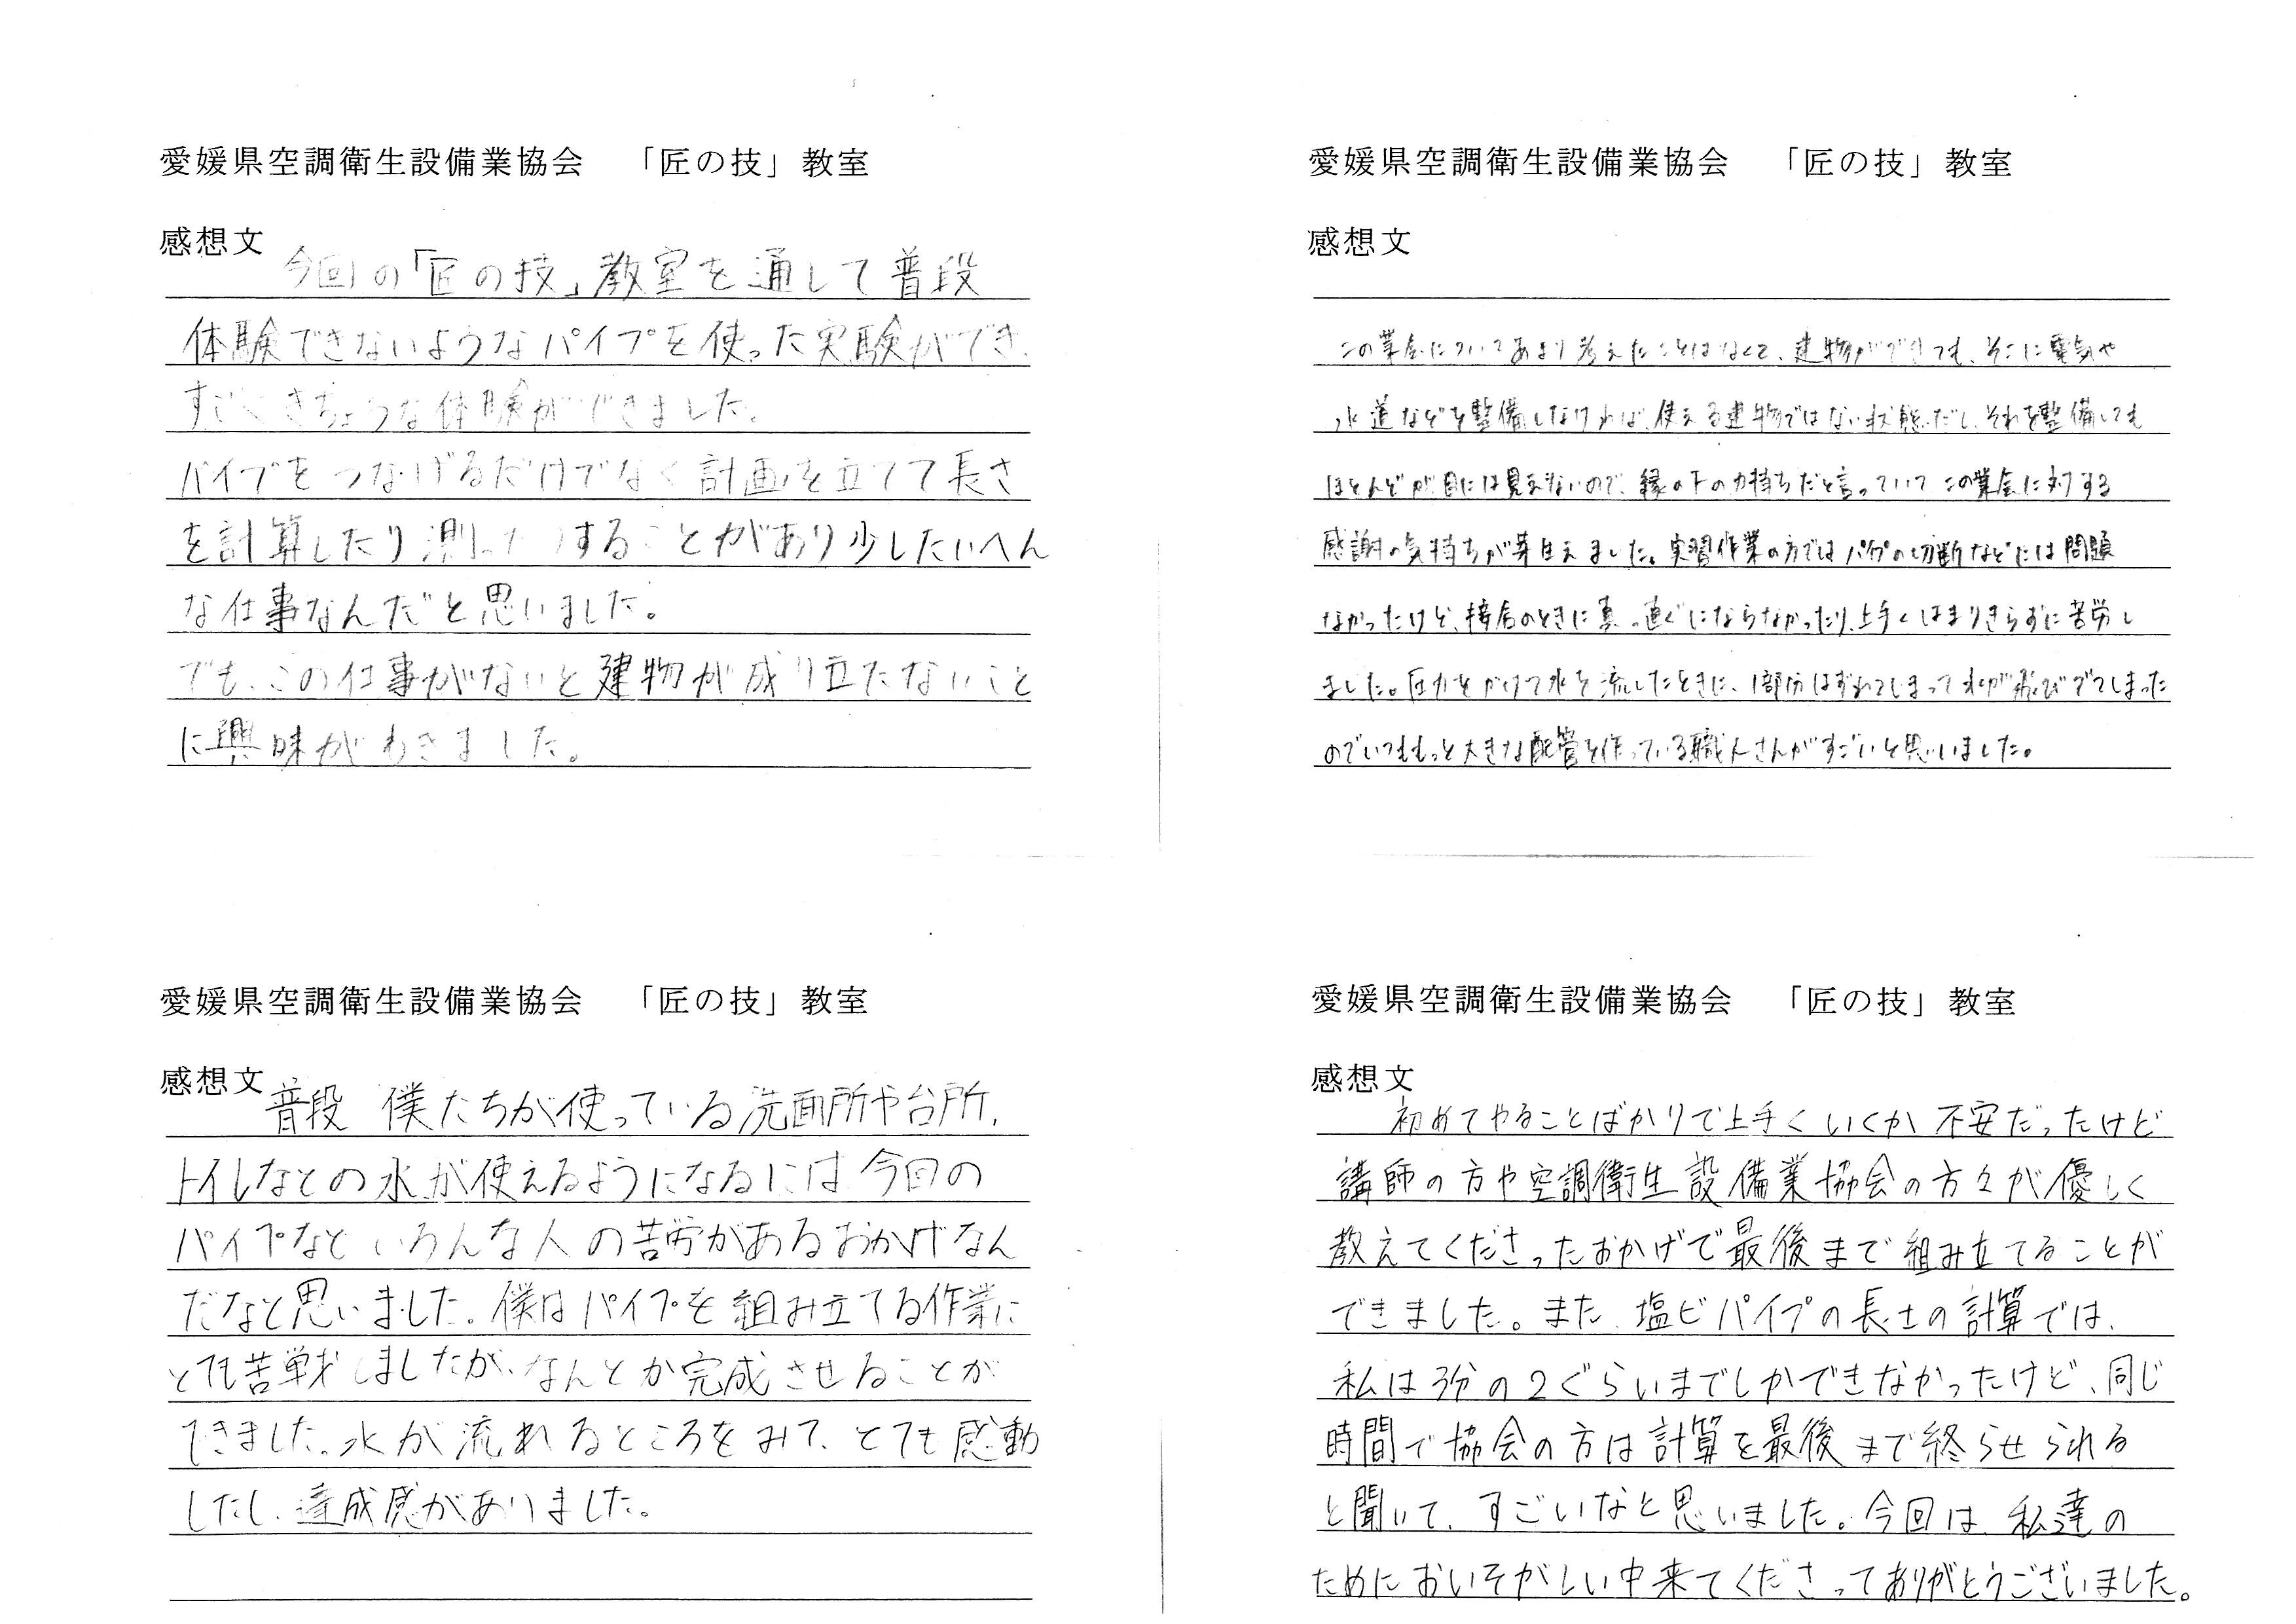 愛媛県空調衛生設備業協会 「匠の技」教室
感想文
今回の「匠の技」教室を通して普段
体験できないようなパイプを使った実験ができ、
すごくきちょうな体験ができました。
パイプをつなげるだけでなく計画を立てて長さ
を計算したり測ったりすることがあり少したいへん
な仕事なんだと思いました。
でも、この仕事がないと建物が成り立たないこと
に興味がわきました。
愛媛県空調衛生設備業協会 「匠の技」教室
感想文
この業会についてあまり考えたことはなくて、建物ができても、そこに電気や
水道などを整備しなければ、使える建物ではない状態だし、それを整備しても
ほとんどが目には見えないので、縁の下の力持ちだと言っていてこの業会に対する
感謝の気持ちが芽生えました。実習作業の方ではパイプの切断などには問題
なかったけど、接着のときに真っ直ぐにならなかったり、上手くはまりきらずに苦労し
ました。圧力をかけて水を流したときに、1部分はずれてしまって水が飛びでてしまった
のでいつももっと大きな配管を作っている職人さんがすごいと思いました。
愛媛県空調衛生設備業協会 「匠の技」教室
感想文
普段 僕たちが使っている洗面所や台所、
トイレなどの水が使えるようになるには今回の
パイプなど いろんな人の苦労があるおかげなん
だなと思いました。僕はパイプを組み立てる作業に
とても苦戦しましたが、なんとか完成させることが
できました。水が流れるところをみて、とても感動
したし、達成感がありました。
愛媛県空調衛生設備業協会 「匠の技」教室
感想文
初めてやることばかりで上手くいくか不安だったけど
講師の方や空調衛生設備業協会の方々が優しく
教えてくださったおかげで最後まで組み立てることが
できました。また、塩ビパイプの長さの計算では、
私は3分の2ぐらいまでしかできなかったけど、同じ
時間で協会の方は計算を最後まで終らせられる
と聞いて、すごいなと思いました。今回は、私達の
ためにおいそがしい中来てくださってありがとうございました。